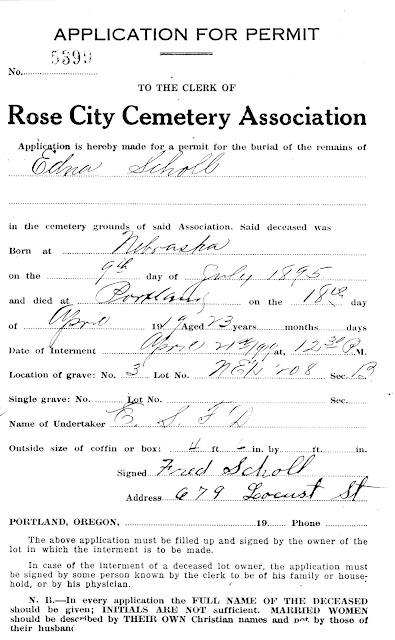 APPLICATION FOR PERMIT
No. 5399
TO THE CLERK OF
Rose City Cemetery Association
Application is hereby made for a permit for the burial of the remains of
Edna Scholl
in the cemetery grounds of said Association. Said deceased was
Born at Nebraska
on the 9th day of July 1895
and died at Portland on the 18th day
of April 1919 Aged 23 years months days
Date of Interment April 21st/1919 at, 12 30 P.M.
Location of grave: No. 3 Lot No. NE¼ 208 Sec. B
Single grave: No. Lot No. Sec.
Name of Undertaker E. S. F D
Outside size of coffin or box: 4 ft - in. by ft. in.
Signed Fred Scholl
Address 679 Locust St
PORTLAND, OREGON, 19 Phone
The above application must be filled up and signed by the owner of the
lot in which the interment is to be made.
In case of the interment of a deceased lot owner, the application must
be signed by some person known by the clerk to be of his family or house-
hold, or by his physician.
N. B.—In every application the FULL NAME OF THE DECEASED
should be given; INITIALS ARE NOT sufficient. MARRIED WOMEN
should be described by THEIR OWN Christian names and not by those of
their husband